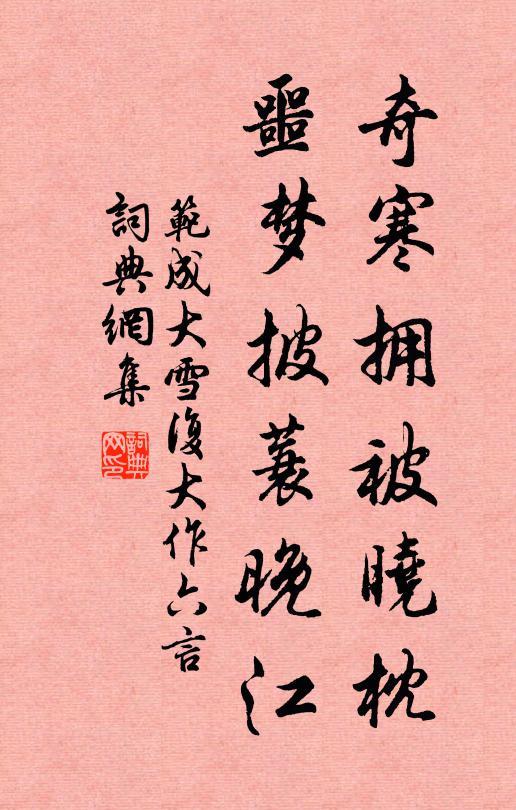 奇寒拥被曉枕
噩梦披蓑晚江
範成大雪復大作六言
詞典網集
詞典网印